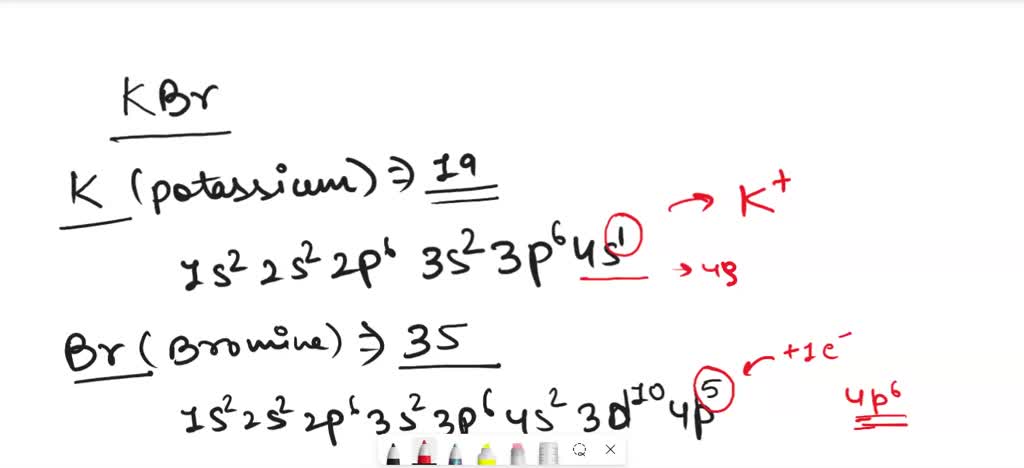 KBr
K (potassium) ⇒ 19
1s² 2s² 2p⁶ 3s² 3p⁶ 4s¹ → K⁺
→ 4s
Br (Bromine) ⇒ 35
+1e⁻
1s² 2s² 2p⁶ 3s² 3p⁶ 4s² 3d¹⁰ 4p⁵
4p⁶